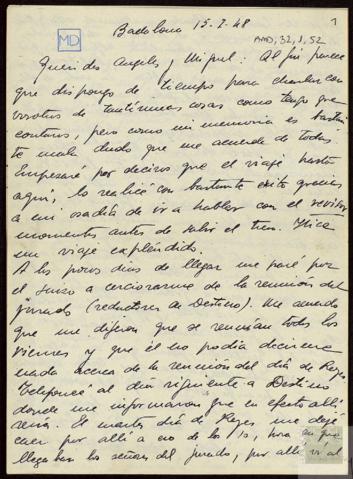 1
Badalona 15-I-48
AMD, 32, 1, 52
MD
Queridos Angeles y Miguel: Al fin parece
que dispongo de tiempo para charlar con
vosotros de tantísimas cosas como tengo que
contaros, pero como mi memoria es bastan
te mala dudo que me acuerde de todas.
Empezaré por deciros que el viaje hasta
aquí, lo realicé con bastante éxito gracias
a mi osadía de ir a hablar con el revisor
momentos antes de salir el tren. Hice
un viaje expléndido.
A los pocos días de llegar me paré por
el Suizo a cerciorarme de la reunión del
jurado (redactores de Destino). Me acuerdo
que me dijeron que se reunían todos los
viernes y que él no podía decirme
nada acerca de la reunión del día de Reyes
Telefoneé al día siguiente a Destino
donde me informaron que en efecto allí
sería. El martes día de Reyes me dejé
caer por allí a eso de las 10, hora en que
llegaban los señores del jurado, por allí vi al